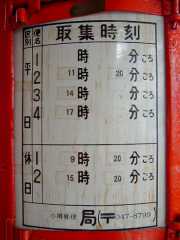 区別 便名 取集時刻
平日 1 時 分ごろ
2 11時 20分ごろ
3 14時 分ごろ
4 17時 分ごろ
休日 1 9時 20分ごろ
2 15時 20分ごろ
小樽郵便局(〒047-8799)